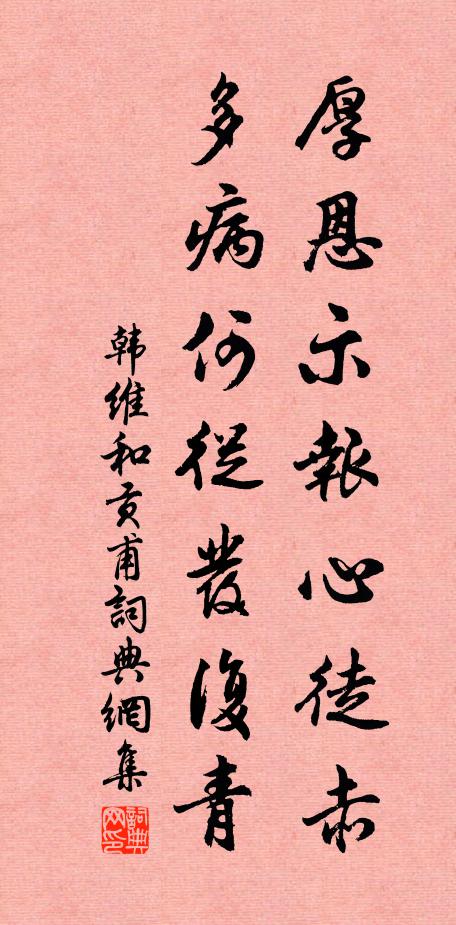 厚恩示報心徒赤
多病何從發復青
韩维和贡甫詞典網集
詞典网印